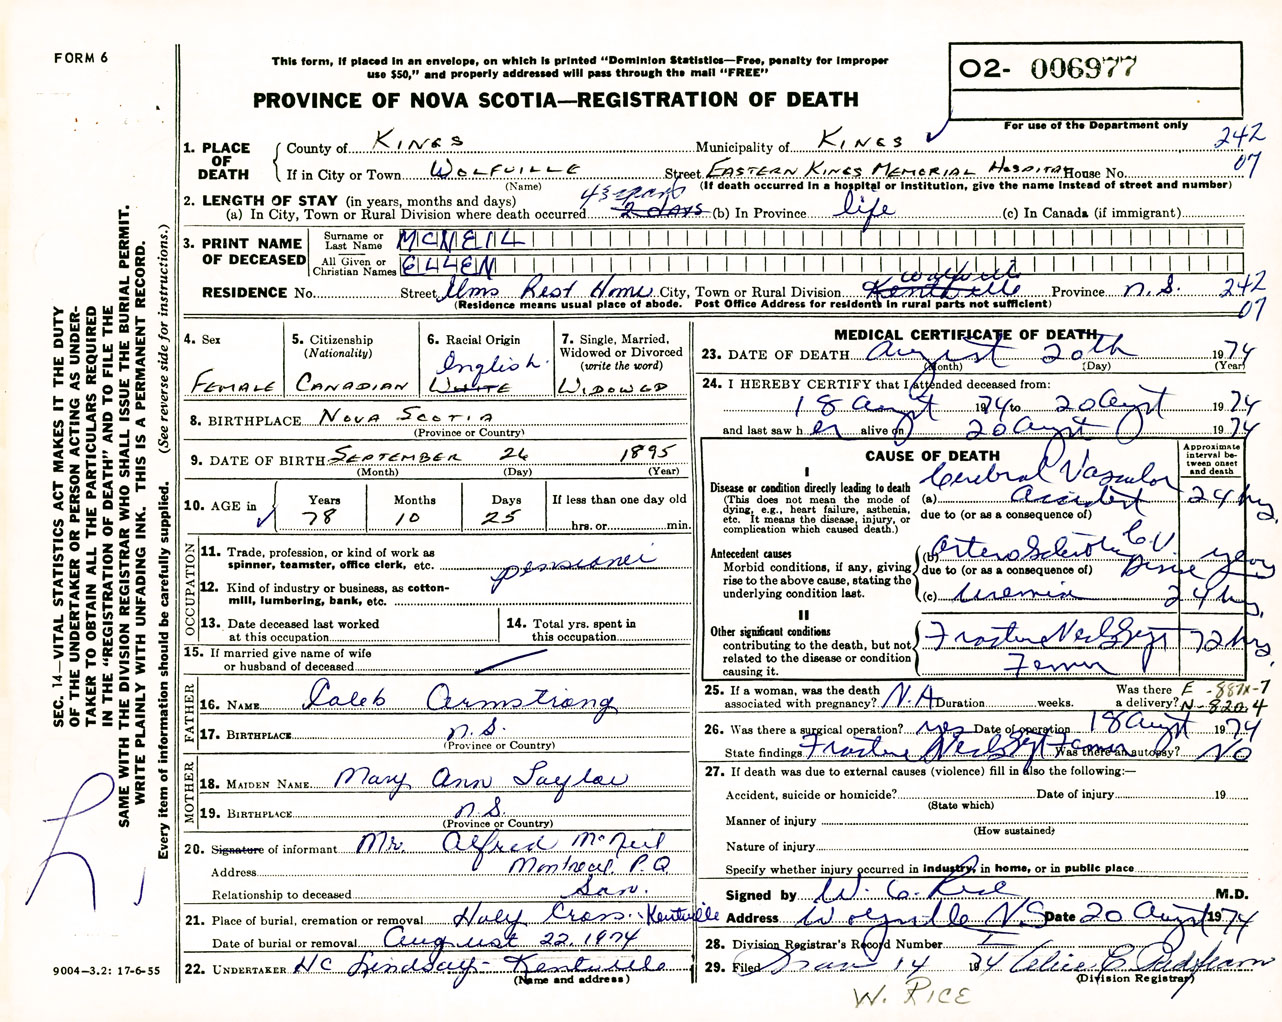 FORM 6
This form, if placed in an envelope, on which is printed "Dominion Statistics—Free, penalty for improper
use $50," and properly addressed will pass through the mail "FREE"
02- 006977
PROVINCE OF NOVA SCOTIA—REGISTRATION OF DEATH
For use of the Department only
1. PLACE OF DEATH
County of KINGS Municipality of KINGS
242
07
If in City or Town WOLFVILLE Street EASTERN KINGS MEMORIAL HOSPITAL House No.
(Name) (If death occurred in a hospital or institution, give the name instead of street and number)
2. LENGTH OF STAY (in years, months and days)
43 years
(a) In City, Town or Rural Division where death occurred 2 days (b) In Province life (c) In Canada (if immigrant)
3. PRINT NAME OF DECEASED
Surname or Last Name MCNEIL
All Given or Christian Names ELLEN
Wolfville
RESIDENCE No. Street Elms Rest Home City, Town or Rural Division Kentville Province N.S. 242
07
(Residence means usual place of abode. Post Office Address for residents in rural parts not sufficient)
4. Sex
FEMALE
5. Citizenship
(Nationality)
CANADIAN
6. Racial Origin
English
WHITE
7. Single, Married,
Widowed or Divorced
(write the word)
WIDOWED
8. BIRTHPLACE NOVA SCOTIA
(Province or Country)
9. DATE OF BIRTH SEPTEMBER 26 1895
(Month) (Day) (Year)
10. AGE in
Years Months Days If less than one day old
78 10 25 hrs. or min.
OCCUPATION
11. Trade, profession, or kind of work as
spinner, teamster, office clerk, etc.
pensioner
12. Kind of industry or business, as cotton-
mill, lumbering, bank, etc.
13. Date deceased last worked
at this occupation
14. Total yrs. spent in
this occupation
15. If married give name of wife
or husband of deceased
FATHER
16. NAME Caleb Armstrong
17. BIRTHPLACE N.S.
(Province or Country)
MOTHER
18. MAIDEN NAME Mary Ann Taylor
19. BIRTHPLACE N.S.
(Province or Country)
20. Signature of informant Mr. Alfred McNeil
Address Montreal P.Q.
Relationship to deceased Son.
21. Place of burial, cremation or removal Holy Cross. Kentville
Date of burial or removal August 22, 1974
22. UNDERTAKER HC Lindsay- Kentville
(Name and address)
MEDICAL CERTIFICATE OF DEATH
23. DATE OF DEATH August 20th 1974
(Month) (Day) (Year)
24. I HEREBY CERTIFY that I attended deceased from:
18 August 1974 to 20 August 1974
and last saw her alive on 20 August 1974
CAUSE OF DEATH
Approximate
interval be-
tween onset
and death
I
Disease or condition directly leading to death
(This does not mean the mode of
dying, e.g., heart failure, asthenia,
etc. It means the disease, injury, or
complication which caused death.)
(a) Cerebral Vascular Accident 24 hrs.
due to (or as a consequence of)
Antecedent causes
Morbid conditions, if any, giving
rise to the above cause, stating the
underlying condition last.
(b) Arteriosclerotic C.V. Disease years
due to (or as a consequence of)
(c) Uremia 24 hrs.
II
Other significant conditions
contributing to the death, but not
related to the disease or condition
causing it.
Fracture Neck Femur 72 hrs.
25. If a woman, was the death
associated with pregnancy? N.A. Duration weeks.
Was there
a delivery?
26. Was there a surgical operation? yes Date of operation 18 August 1974
State findings Fracture Neck Femur Was there an autopsy? No
27. If death was due to external causes (violence) fill in also the following:—
Accident, suicide or homicide? Date of injury 19
(State which)
Manner of injury
(How sustained)
Nature of injury
Specify whether injury occurred in industry, in home, or in public place
Signed by W. C. Rice M.D.
Address Wolfville N.S. Date 20 August 1974
28. Division Registrar's Record Number
29. Filed 14 1974 Alice C.
(Division Registrar)
W. RICE
SEC. 14—VITAL STATISTICS ACT MAKES IT THE DUTY
OF THE UNDERTAKER OR PERSON ACTING AS UNDER-
TAKER TO OBTAIN ALL THE PARTICULARS REQUIRED
IN THE "REGISTRATION OF DEATH" AND TO FILE THE
SAME WITH THE DIVISION REGISTRAR WHO SHALL ISSUE THE BURIAL PERMIT.
WRITE PLAINLY WITH UNFADING INK. THIS IS A PERMANENT RECORD.
Every item of information should be carefully supplied. (See reverse side for instructions.)
9004—3.2: 17-6-55